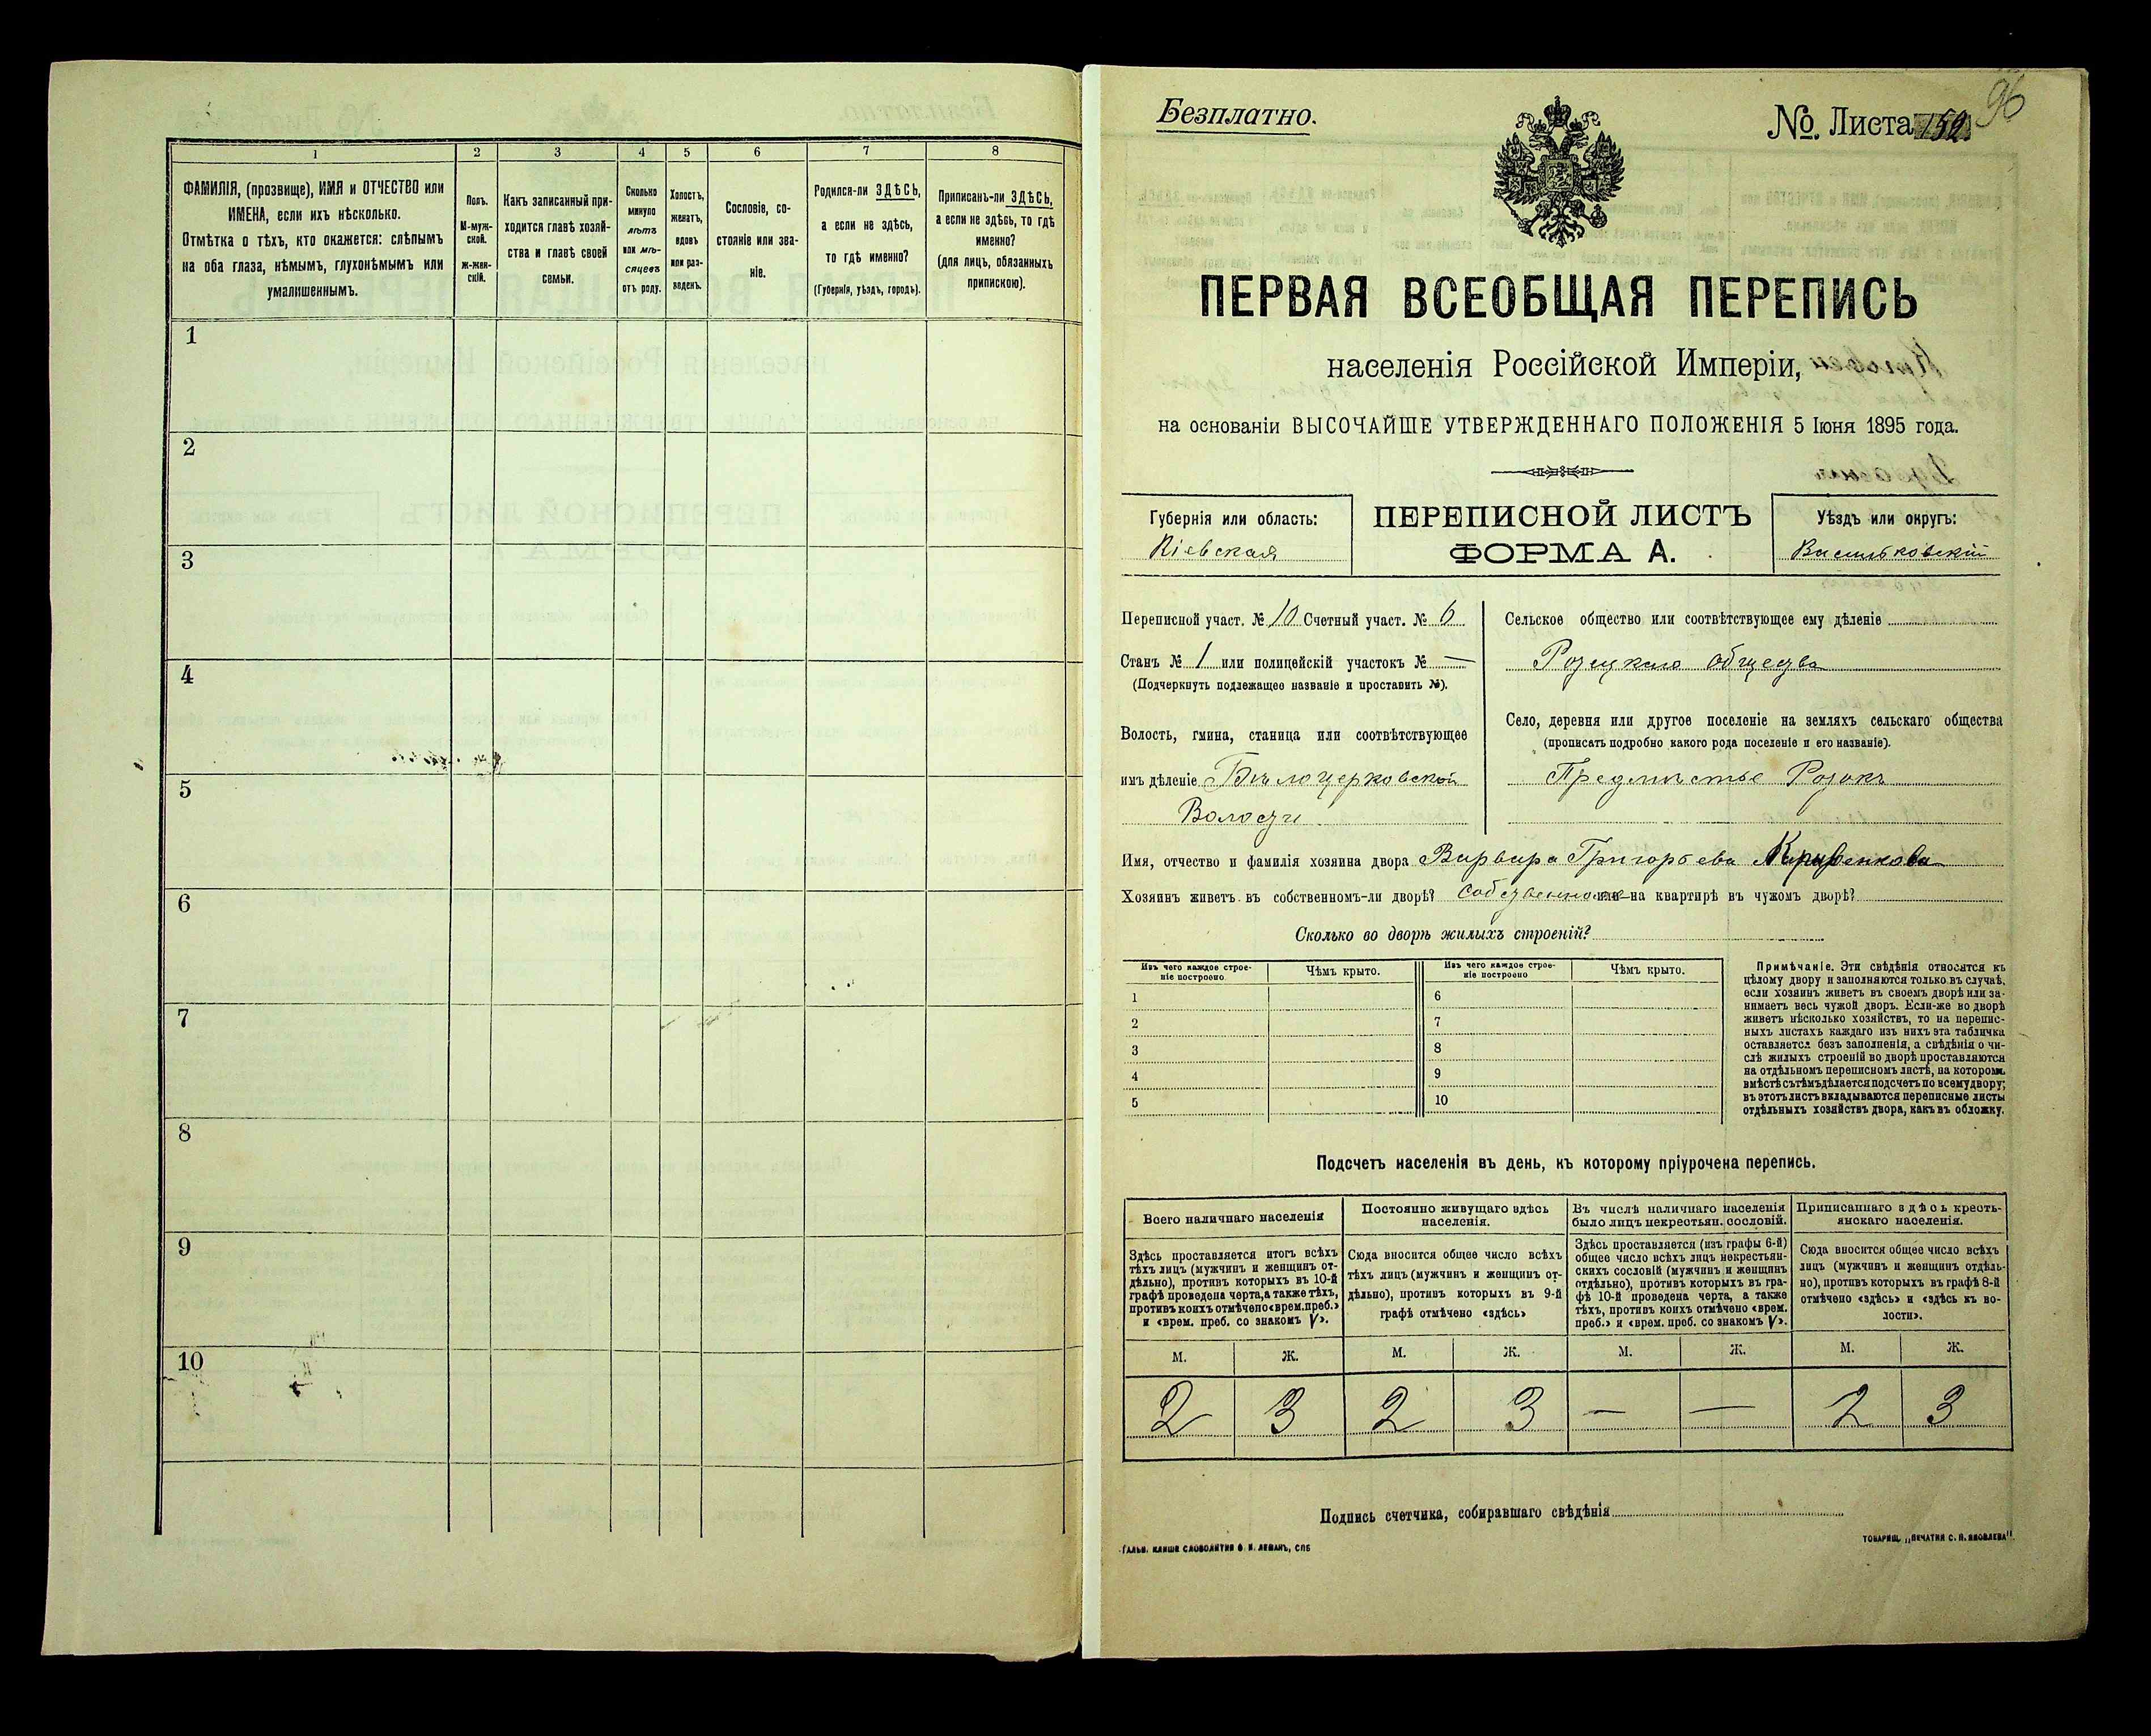 1
2
3
4
5
6
7
8
ФАМИЛІЯ, (прозвище), ИМЯ и ОТЧЕСТВО или
ИМЕНА, если ихъ нѣсколько.
Отмѣтка о тѣхъ, кто окажется: слѣпымъ
на оба глаза, нѣмымъ, глухонѣмымъ или
умалишеннымъ.
Полъ.
М-муж-
ской.
Ж-жен-
скій.
Какъ записанный при-
ходится главѣ хозяй-
ства и главѣ своей
семьи.
Сколько
минуло
лѣтъ
или мѣ-
сяцевъ
отъ роду.
Холостъ,
женатъ,
вдовъ
или раз-
веденъ.
Сословіе, со-
стояніе или зва-
ніе.
Родился-ли ЗДѢСЬ,
а если не здѣсь,
то гдѣ именно?
(Губернія, уѣздъ, городъ).
Приписанъ-ли ЗДѢСЬ,
а если не здѣсь, то гдѣ
именно?
(для лицъ, обязанныхъ
припискою).
1
2
3
4
5
6
7
8
9
10
96
Безплатно.
№. Листа 152
ПЕРВАЯ ВСЕОБЩАЯ ПЕРЕПИСЬ
населенія Россійской Имперіи,
на основаніи ВЫСОЧАЙШЕ УТВЕРЖДЕННАГО ПОЛОЖЕНІЯ 5 Іюня 1895 года.
Губернія или область:
Кіевская
ПЕРЕПИСНОЙ ЛИСТЪ
ФОРМА А.
Уѣздъ или округъ:
Васильковскій
Переписной участ. № 10 Счетный участ. № 6
Станъ № 1 или полицейскій участокъ № —
(Подчеркнуть подлежащее названіе и проставить №).
Волость, гмина, станица или соотвѣтствующее
имъ дѣленіе Бѣлоцерковской
Волости
Сельское общество или соотвѣтствующее ему дѣленіе
Розецкаго общества
Село, деревня или другое поселеніе на земляхъ сельскаго общества
(прописать подробно какого рода поселеніе и его названіе).
Предмѣстье Розокъ
Имя, отчество и фамилія хозяина двора Варвара Григорьева
Хозяинъ живетъ въ собственномъ-ли дворѣ? собственномъ или на квартирѣ въ чужомъ дворѣ?
Сколько во дворѣ жилыхъ строеній?
Изъ чего каждое строе-
ніе построено.
Чѣмъ крыто.
Изъ чего каждое строе-
ніе построено
Чѣмъ крыто.
1
2
3
4
5
6
7
8
9
10
Примѣчаніе. Эти свѣдѣнія относятся къ
цѣлому двору и заполняются только въ случаѣ,
если хозяинъ живетъ въ своемъ дворѣ или за-
нимаетъ весь чужой дворъ. Если-же во дворѣ
живетъ нѣсколько хозяйствъ, то на перепис-
ныхъ листахъ каждаго изъ нихъ эта табличка
оставляется безъ заполненія, а свѣдѣнія о чи-
слѣ жилыхъ строеній во дворѣ проставляются
на отдѣльномъ переписномъ листѣ, на которомъ
вмѣстѣ съ тѣмъ дѣлается подсчетъ по всему двору;
въ этотъ листъ вкладываются переписные листы
отдѣльныхъ хозяйствъ двора, какъ въ обложку.
Подсчетъ населенія въ день, къ которому пріурочена перепись.
Всего наличнаго населенія
Здѣсь проставляется итогъ всѣхъ
тѣхъ лицъ (мужчинъ и женщинъ от-
дѣльно), противъ которыхъ въ 10-й
графѣ проведена черта, а также тѣхъ,
противъ коихъ отмѣчено «врем. преб.»
и «врем. преб. со знакомъ V».
Постоянно живущаго здѣсь
населенія.
Сюда вносится общее число всѣхъ
тѣхъ лицъ (мужчинъ и женщинъ от-
дѣльно), противъ которыхъ въ 9-й
графѣ отмѣчено «здѣсь»
Въ числѣ наличнаго населенія
было лицъ некрестьян. сословій.
Здѣсь проставляется (изъ графы 6-й)
общее число всѣхъ лицъ некрестьян-
скихъ сословій (мужчинъ и женщинъ
отдѣльно), противъ которыхъ въ гра-
фѣ 10-й проведена черта, а также
тѣхъ, противъ коихъ отмѣчено «врем.
преб.» и «врем. преб. со знакомъ V».
Приписаннаго здѣсь кресть-
янскаго населенія.
Сюда вносится общее число всѣхъ
лицъ (мужчинъ и женщинъ отдѣль-
но), противъ которыхъ въ графѣ 8-й
отмѣчено «здѣсь» и «здѣсь къ во-
лости».
М. Ж. М. Ж. М. Ж. М. Ж.
2 3 2 3 — — 2 3
Подпись счетчика, собиравшаго свѣдѣнія
ГАЛЬВ. КЛИШЕ СЛОВОЛИТНИ О. И. ЛЕМАНЪ, СПБ
ТОВАРИЩ. „ПЕЧАТНЯ С. П. ЯКОВЛЕВА".